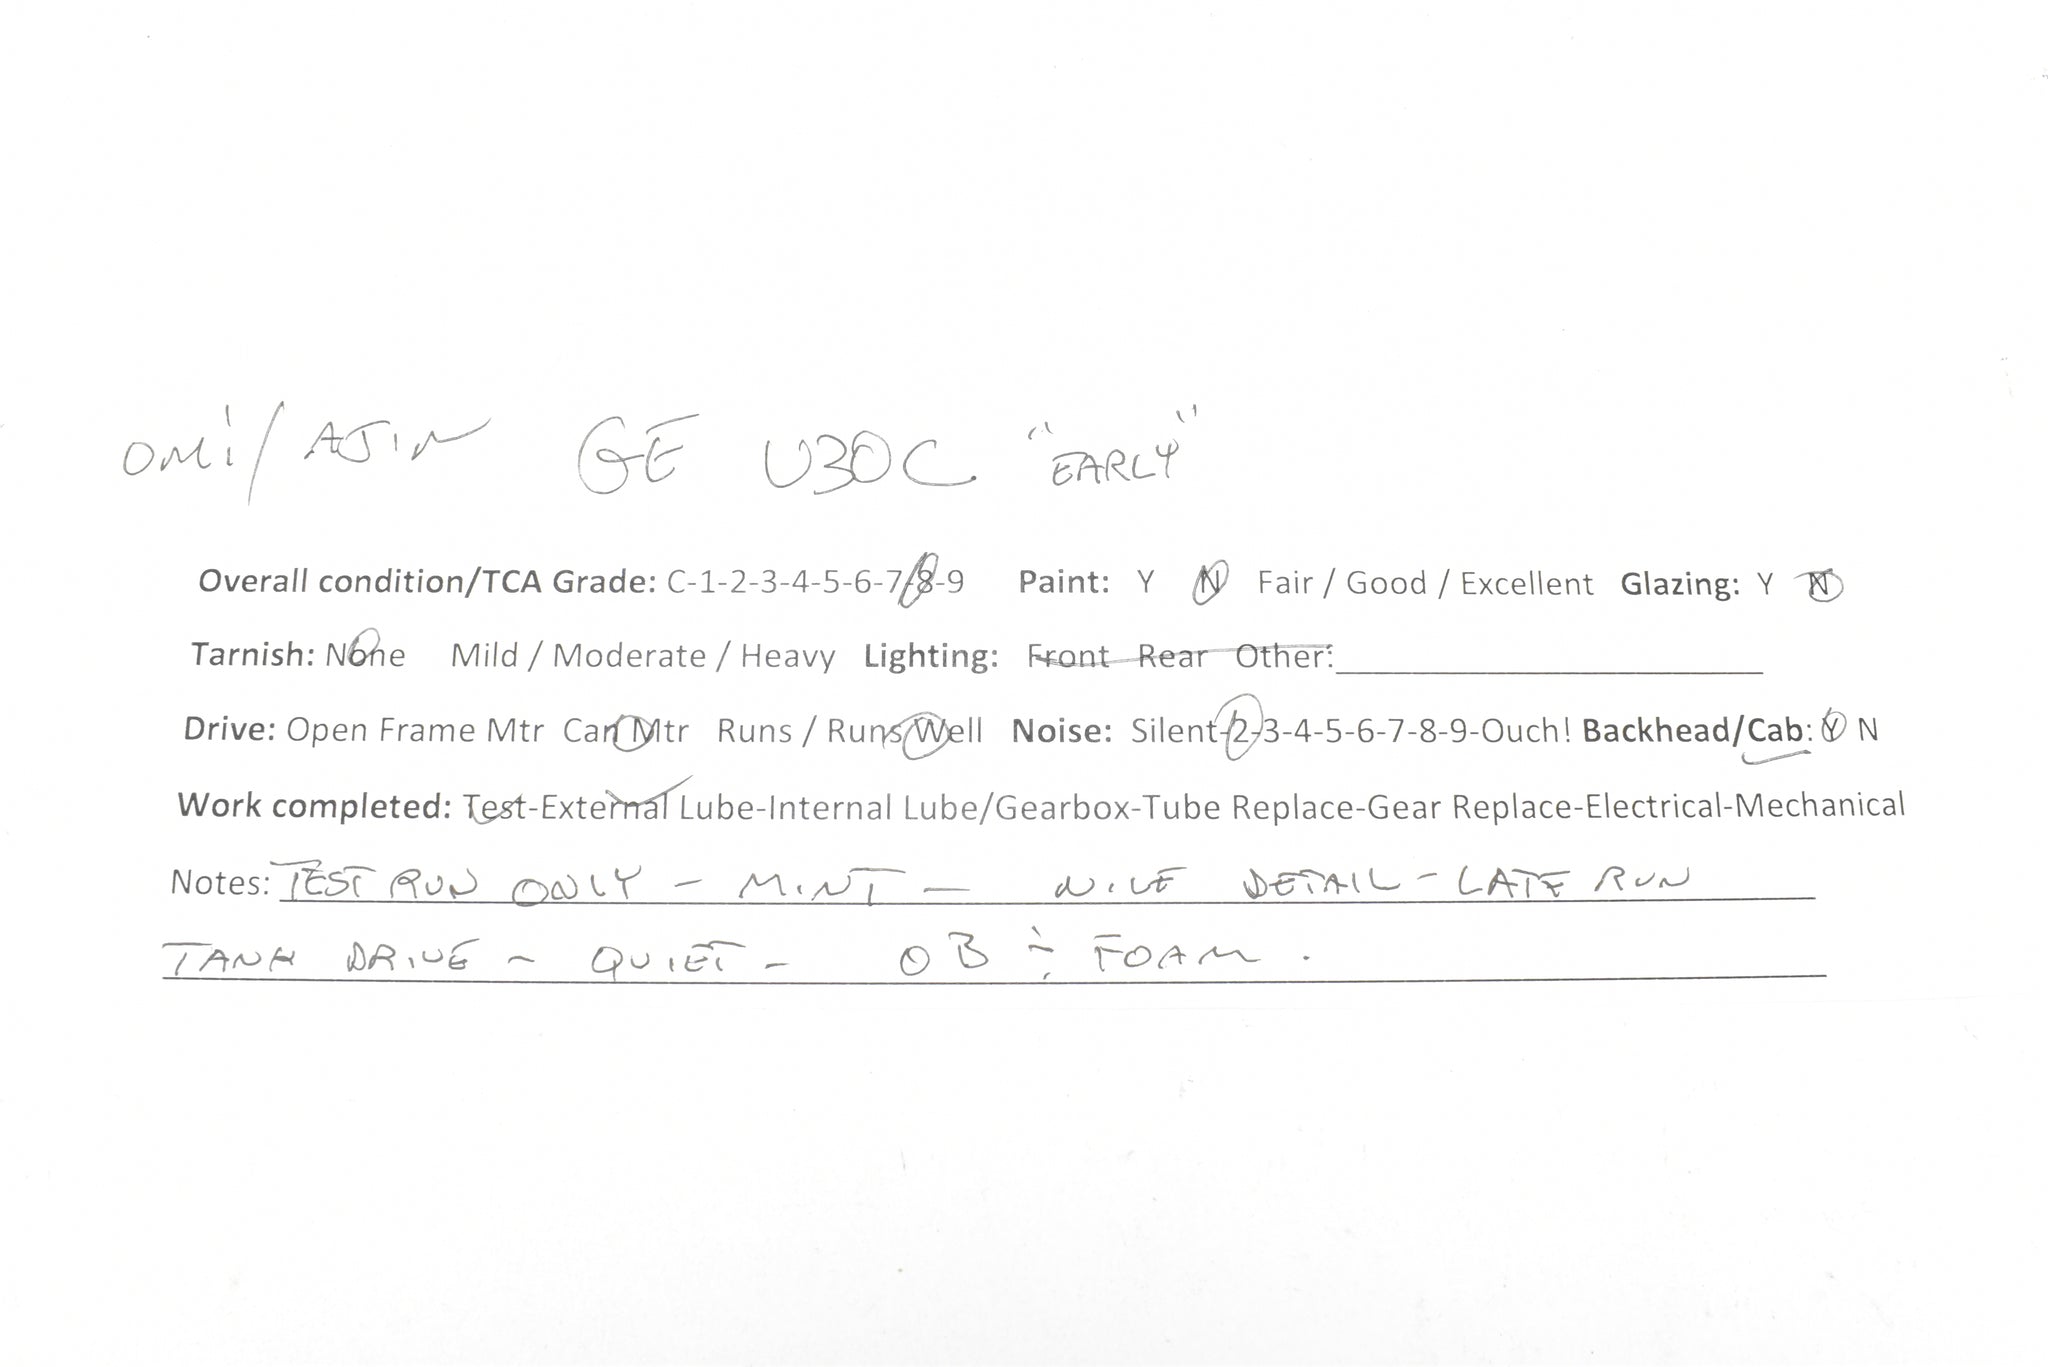 OMi/AJIN GE U30C "EARLY"
Overall condition/TCA Grade: C-1-2-3-4-5-6-7-8-9 Paint: Y N Fair / Good / Excellent Glazing: Y N
Tarnish: None Mild / Moderate / Heavy Lighting: Front Rear Other:
Drive: Open Frame Mtr Can Mtr Runs / Runs Well Noise: Silent-2-3-4-5-6-7-8-9-Ouch! Backhead/Cab: Y N
Work completed: Test-External Lube-Internal Lube/Gearbox-Tube Replace-Gear Replace-Electrical-Mechanical
Notes: TEST RUN ONLY - MINT - NICE DETAIL - LATE RUN
TANK DRIVE - QUIET - OB ÷ FOAM.